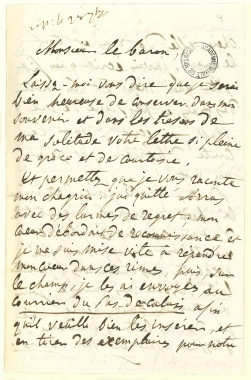 Monsieur le baron
Laissez-moi vous dire que je serai
bien heureuse de conserver dans mon
souvenir et dans les trésors de
ma solitude votre lettre si pleine
de grâce et de courtoisie.
Et permettez que je vous raconte
mon chagrin: j'ai quitté Arras
avec des larmes de regret; mon
cœur débordait de reconnaissance et
je me suis mise vite à répandre
mon cœur dans ces rimes, puis sur
le champ, je les ai envoyés au
Courrier du Pas de Calais afin
qu'il veuille bien les insérer et
en tirer des exemplaires pour notre